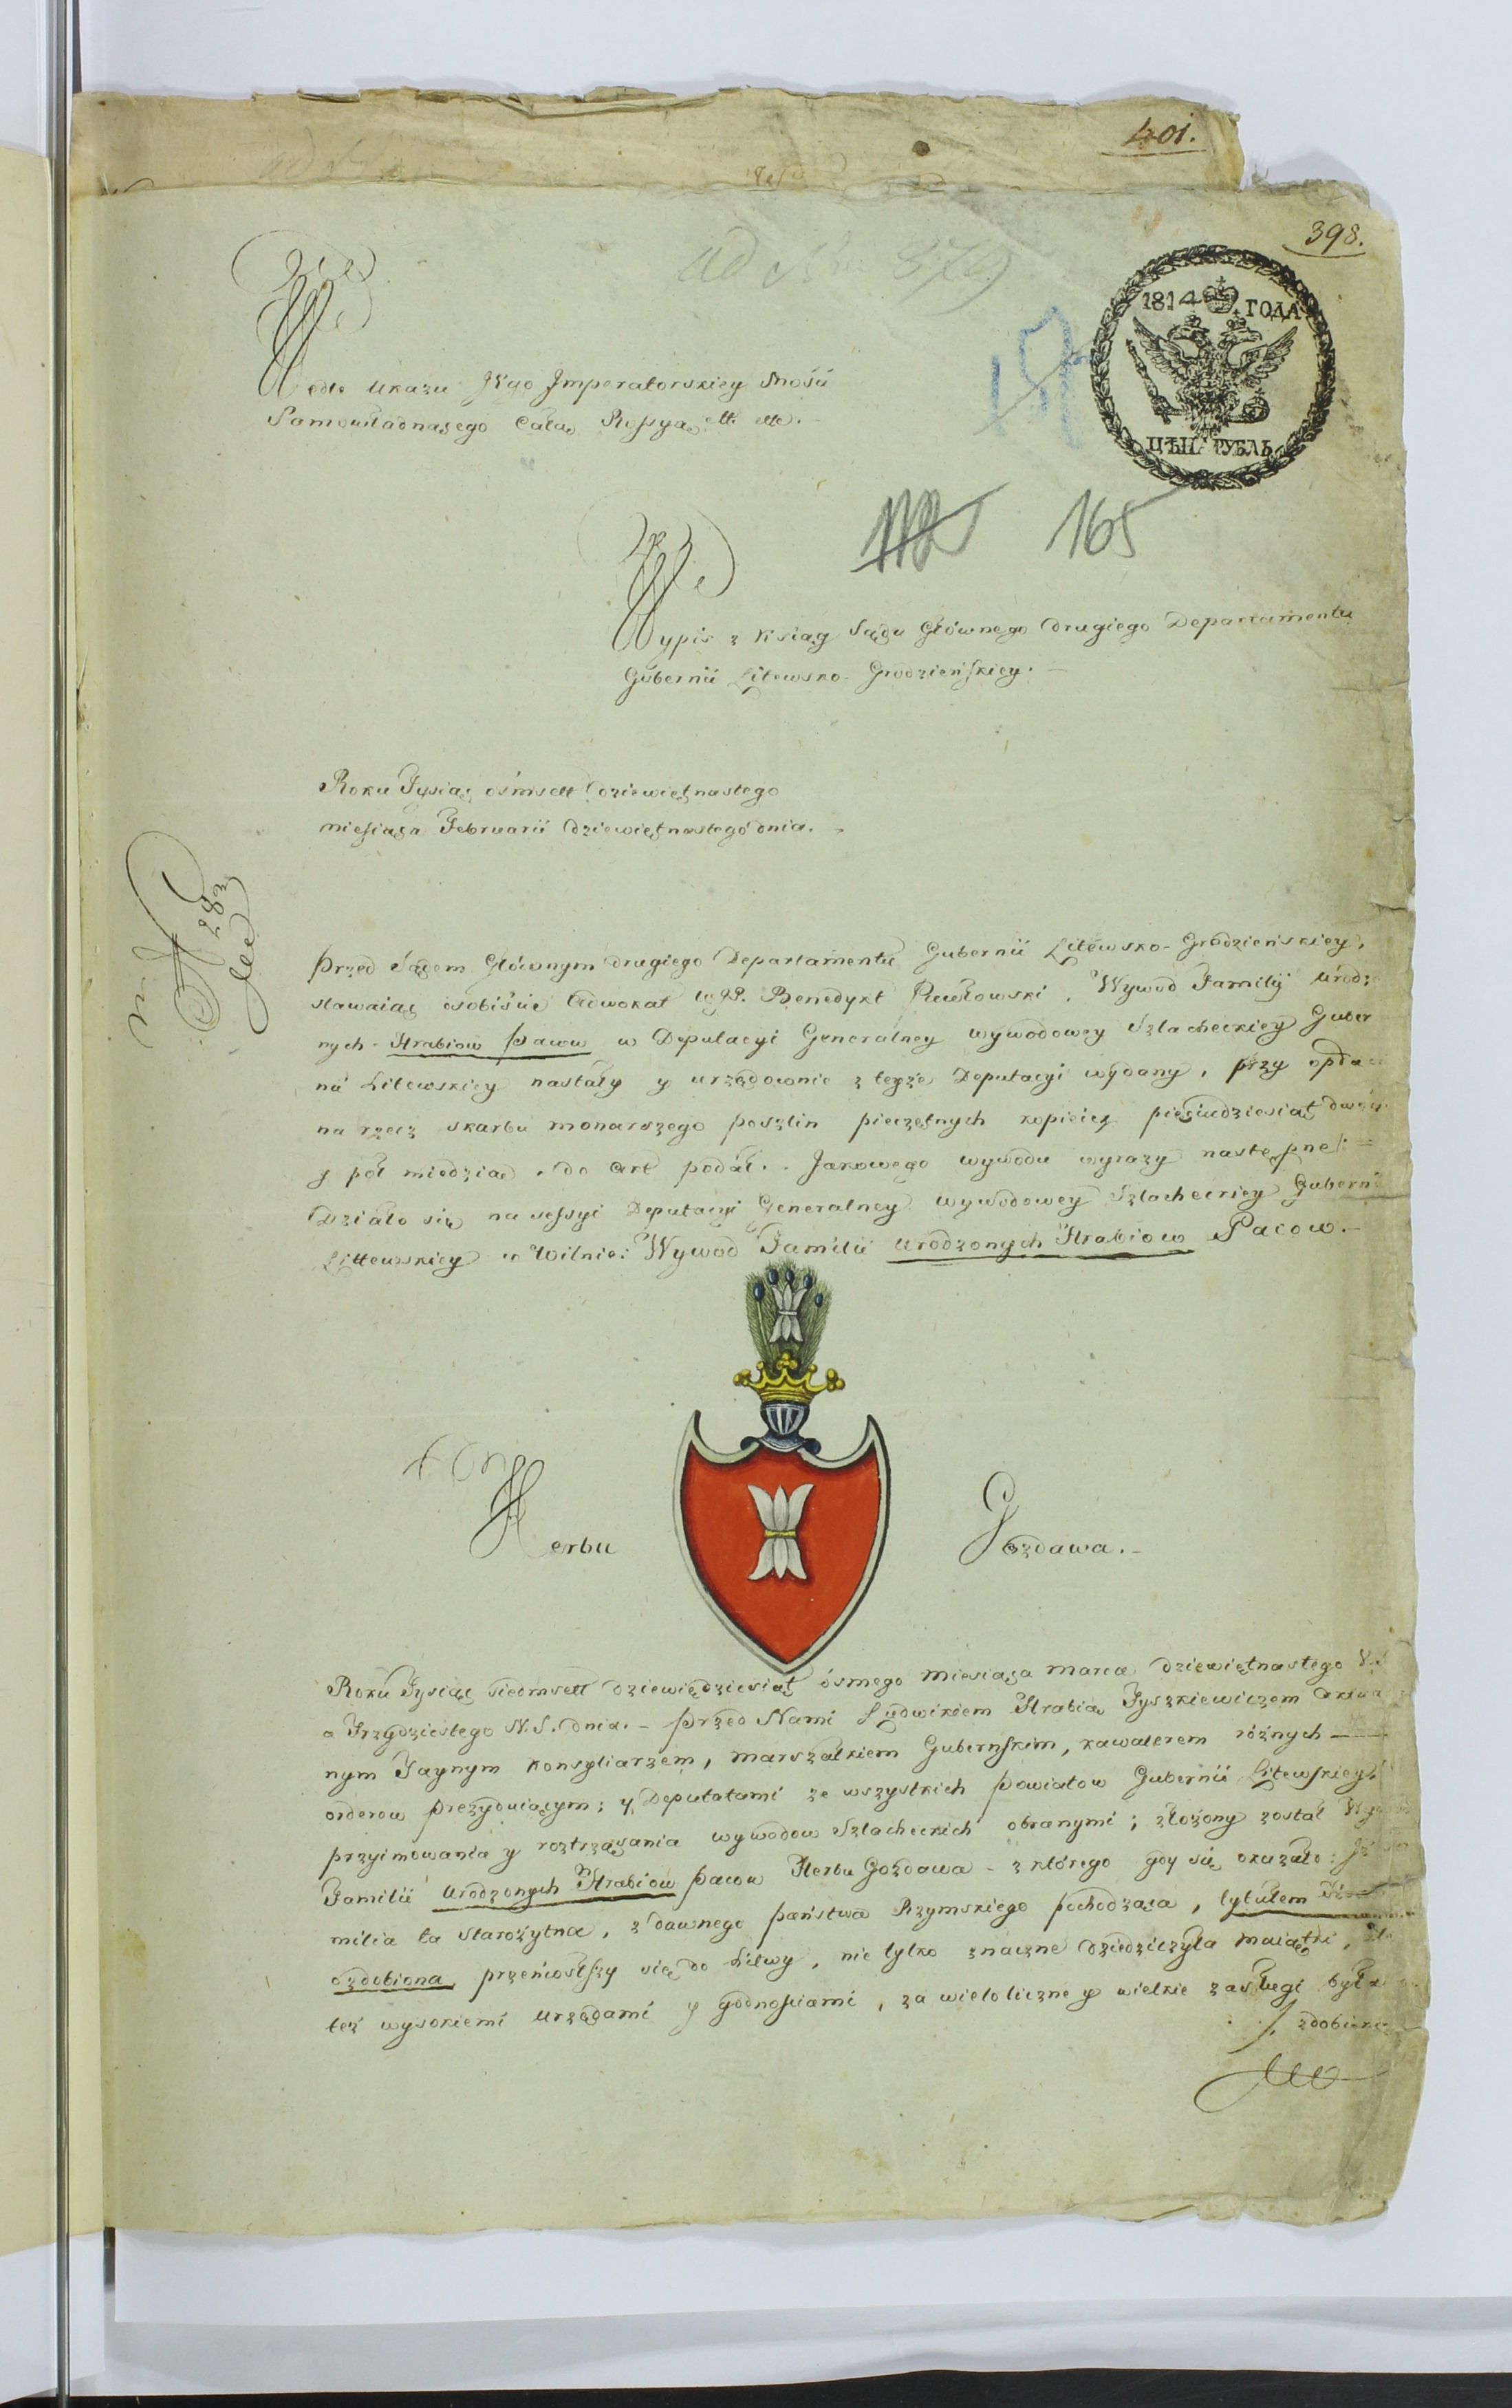 401.
398.
ad Nm 879
1814 ГОДА
ЦѢНА РУБЛЬ
Wedle Ukazu Jego Imperatorskiey Mości
Samowładnącego Całą Rossyą ett ett.
165
Wypis z Ksiąg Sądu Głównego drugiego Departamentu
Gubernii Litewsko-Grodzieńskiey.
Roku Tysiąc ośmsett dziewiętnastego
miesiąca Februarii dziewiętnastego dnia.
N 283
Przed Sądem Głównym drugiego Departamentu Gubernii Litewsko-Grodzieńskiey,
stawaiąc osobiście Adwokat Benedykt Pawłowski, Wywod Familij Urodzo
nych Hrabiow Pacow w Deputacyi Generalney wywodowey Szlacheckiey Guber
nii Litewskiey nastały y urzędownie z teyże Deputacyi wydany, przy opłac
na rzecz skarbu monarszego poszlin pieczętnych kopieiek pięćudziesiąt dwóch
y pół miedzią, do Akt podał. Jakowego wywodu wyrazy następne
Działo się na sessyi Deputacyi Generalney wywodowey Szlacheckiey Gubernii
Littewskiey w Wilnie: Wywod Familii Urodzonych Hrabiow Pacow.
Herbu Gozdawa.
Roku Tysiąc siedmsett dziewiędziesiąt ósmego miesiąca marca dziewiętnastego V.
a Trzydziestego N. S. dnia. Przed Nami Ludwikiem Hrabią Tyszkiewiczem Aktual
nym Taynym Konsyliarzem, Marszałkiem Gubernskim, kawalerem róźnych
orderow prezyduiącym; y Deputatami ze wszystkich powiatow Gubernii Litewskiey
przyimowania y roztrząsania wywodow Szlacheckich obranymi; złożony został Wywod
Familii Urodzonych Hrabiow Pacow Herbu Gozdawa z którego gdy się okazało: Iż
milia ta Starożytna, z dawnego państwa Rzymskiego pochodząca, tytułem
ozdobiona przeniosłszy się do Litwy, nie tylko znaczne dziedziczyła maiątki,
też wysokiemi urzędami y godnościami, za wieloliczne y wielkie zasługi była
zdobiona